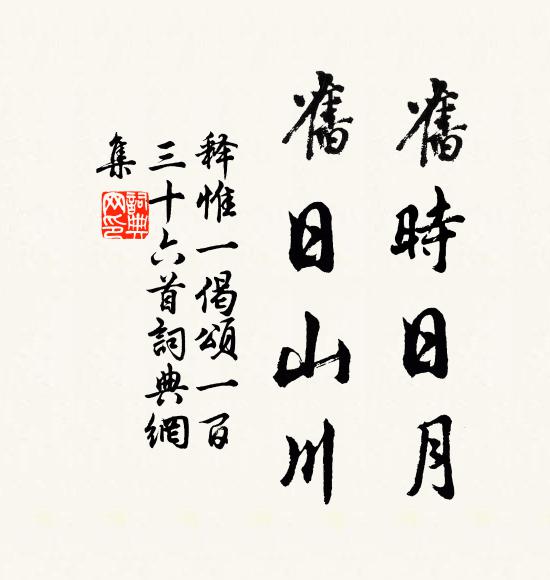 舊時日月
舊日山川
释惟一偈頌一百
三十六首詞典網
集
詞典
网印